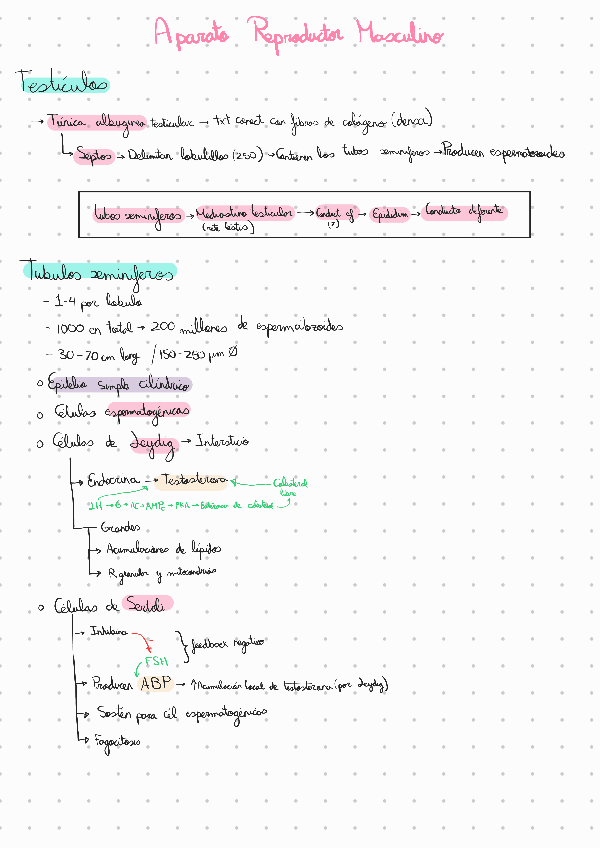 Aparato Reproductor Masculino
Testículos
→ Túnica albugínea testicular → txt conect. con fibras de colágeno (densa)
↳ Septos → Delimitan lobulillos (250) → Contienen los tubos seminíferos → Producen espermatozoides
Tubos seminíferos → Mediastino testicular → Conduct ef → Epidídimo → Conducto deferente
(rete testis)
Túbulos seminíferos
- 1-4 por lóbulo
- 1000 en total → 200 millones de espermatozoides
- 30-70 cm long / 150-250 μm Ø
○ Epitelio simple cilíndrico
○ Células espermatogénicas
○ Células de Leydig → Intersticio
→ Endocrina → Testosterona ← Colesterol
libre
LH → G → AC → AMPc → PKA → Esterasa de colesterol
Grandes
→ Acumulaciones de lípidos
→ R granular y mitocondrias
○ Células de Sertoli
→ Inhibina
feedback negativo
FSH
→ Producen ABP → ↑Acumulación local de testosterona (por Leydig)
→ Sostén para cél espermatogénicas
→ Fagocitosis